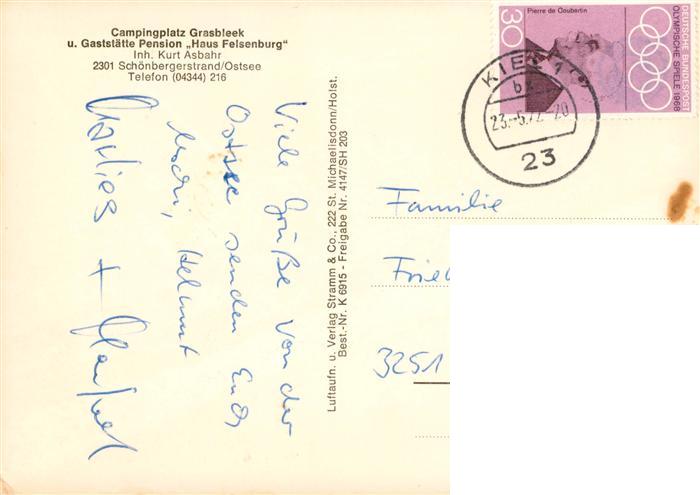 Campingplatz Grasbleek
u. Gaststätte Pension „Haus Felsenburg"
Inh. Kurt Asbahr
2301 Schönbergerstrand/Ostsee
Telefon (04344) 216
Viele Grüße von der
Ostsee senden Euch
Helmut
+ Manfred
Luftaufn. u. Verlag Stramm & Co., 222 St. Michaelisdonn/Holst.
Best.-Nr. K 6915 - Freigabe Nr. 4147/SH 203
Pierre de Coubertin
30
DEUTSCHE BUNDESPOST
OLYMPISCHE SPIELE 1968
KIEL 1
23.-5.72-20
23
Familie
Fried
3251